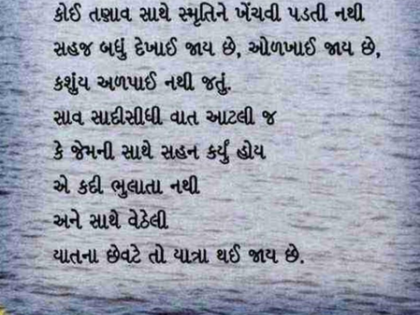 કોઈ તણાવ સાથે સ્મૃતિને ખેંચવી પડતી નથી
સહજ બધું દેખાઈ જાય છે, ઓળખાઈ જાય છે,
કશુંય અળપાઈ નથી જતું.
સાવ સાદીસીધી વાત આટલી જ
કે જેમની સાથે સહન કર્યું હોય
એ કદી ભુલાતા નથી
અને સાથે વેઠેલી
યાતના છેવટે તો યાત્રા થઈ જાય છે.